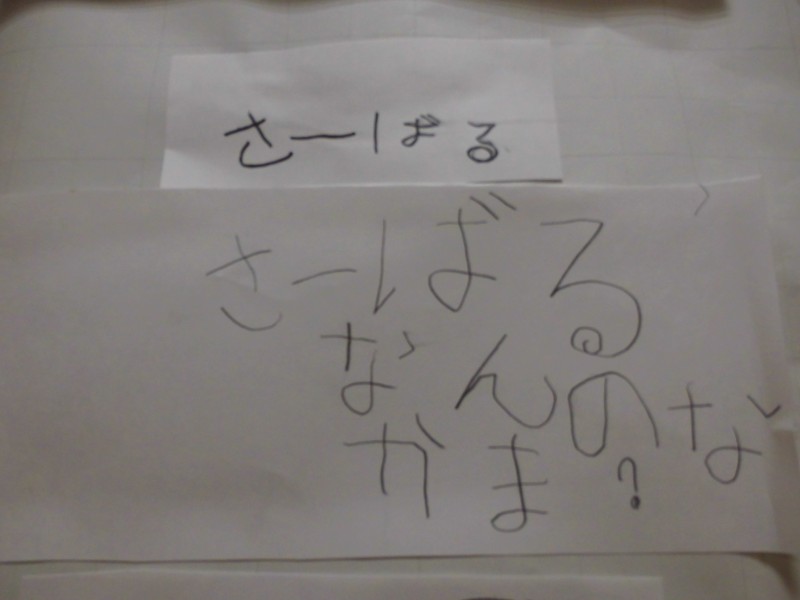 さーばる
さーばる
なんのな
かま?